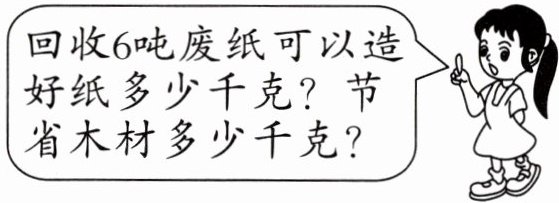 回收6吨废纸可以造
好纸多少千克？节
省木材多少千克？